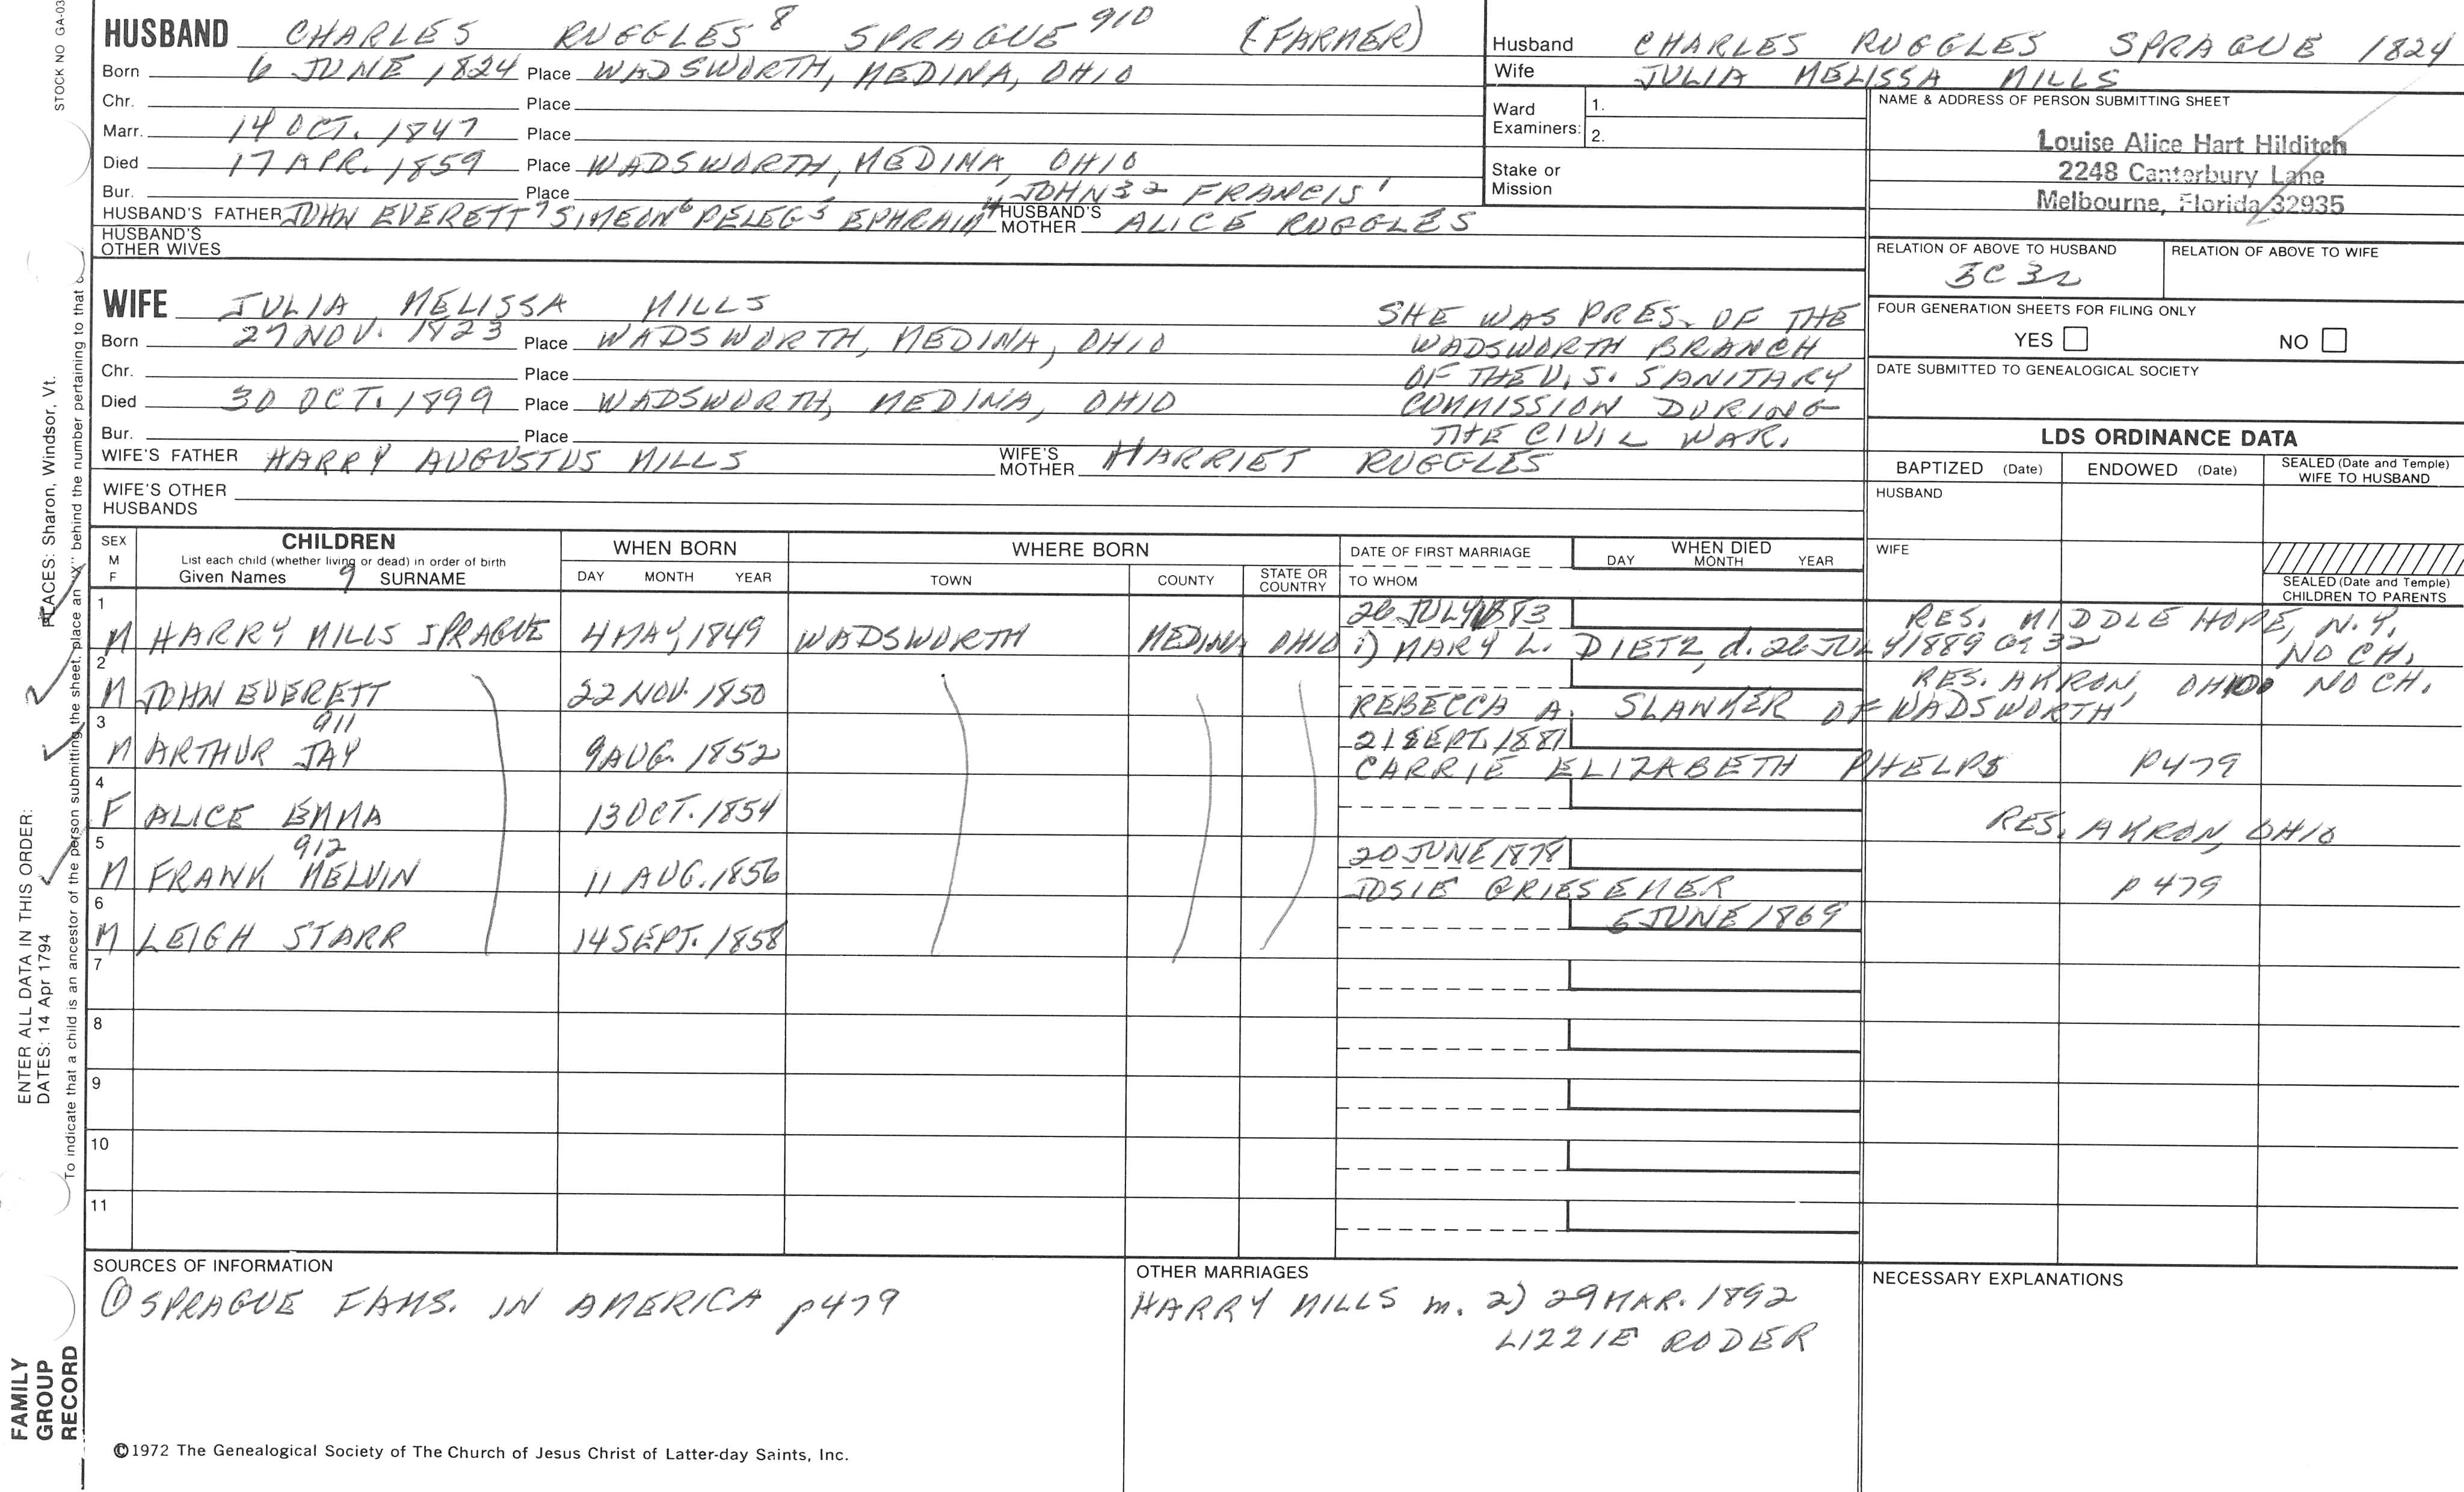 STOCK NO GA-03
HUSBAND CHARLES RUGGLES 8 SPRAGUE 910 (FARMER)
Born 6 JUNE 1824 Place WADSWORTH, MEDINA, OHIO
Chr. Place
Marr. 14 OCT. 1847 Place
Died 17 APR. 1859 Place WADSWORTH, MEDINA, OHIO
Bur. Place
HUSBAND'S FATHER JOHN EVERETT 7 SIMEON 6 PELEG 5 EPHRAIM 4 JOHN 3 2 FRANCIS 1 HUSBAND'S MOTHER ALICE RUGGLES
HUSBAND'S OTHER WIVES
Husband CHARLES RUGGLES SPRAGUE 1824
Wife JULIA MELISSA MILLS
Ward Examiners: 1.
2.
Stake or Mission
NAME & ADDRESS OF PERSON SUBMITTING SHEET
Louise Alice Hart Hilditch
2248 Canterbury Lane
Melbourne, Florida 32935
RELATION OF ABOVE TO HUSBAND
RELATION OF ABOVE TO WIFE
FOUR GENERATION SHEETS FOR FILING ONLY
YES NO
DATE SUBMITTED TO GENEALOGICAL SOCIETY
WIFE JULIA MELISSA MILLS
Born 27 NOV. 1823 Place WADSWORTH, MEDINA, OHIO
Chr. Place
Died 30 OCT. 1899 Place WADSWORTH, MEDINA, OHIO
Bur. Place
WIFE'S FATHER HARRY AUGUSTUS MILLS WIFE'S MOTHER HARRIET RUGGLES
WIFE'S OTHER HUSBANDS
SHE WAS PRES. OF THE
WADSWORTH BRANCH
OF THE U.S. SANITARY
COMMISSION DURING
THE CIVIL WAR.
LDS ORDINANCE DATA
BAPTIZED (Date) ENDOWED (Date) SEALED (Date and Temple) WIFE TO HUSBAND
HUSBAND
WIFE
SEALED (Date and Temple) CHILDREN TO PARENTS
SEX M F CHILDREN WHEN BORN WHERE BORN DATE OF FIRST MARRIAGE WHEN DIED
List each child (whether living or dead) in order of birth
Given Names 9 SURNAME DAY MONTH YEAR TOWN COUNTY STATE OR COUNTRY TO WHOM DAY MONTH YEAR
1 26 JULY 1883 RES. MIDDLE HOPE, N.Y.
M HARRY MILLS SPRAGUE 4 MAY, 1849 WADSWORTH MEDINA OHIO 1) MARY L. DIETZ, d. 26 JULY 1889 ae 32 NO CH.
2 RES. AKRON, OHIO NO CH.
M JOHN EVERETT 22 NOV. 1850 REBECCA A. SLANKER OF WADSWORTH
3 911 21 SEPT. 1881
M ARTHUR JAY 9 AUG. 1852 CARRIE ELIZABETH PHELPS P479
4
F ALICE EMMA 13 OCT. 1854 RES. AKRON, OHIO
5 912 20 JUNE 1878
M FRANK MELVIN 11 AUG. 1856 JOSIE GRIESEMER p479
6 5 JUNE 1869
M LEIGH STARR 14 SEPT. 1858
7
8
9
10
11
SOURCES OF INFORMATION
① SPRAGUE FAMS. IN AMERICA p479
OTHER MARRIAGES
HARRY MILLS m. 2) 29 MAR. 1892
LIZZIE RODER
NECESSARY EXPLANATIONS
©1972 The Genealogical Society of The Church of Jesus Christ of Latter-day Saints, Inc.
FAMILY
GROUP
RECORD
ENTER ALL DATA IN THIS ORDER:
DATES: 14 Apr 1794
PLACES: Sharon, Windsor, Vt.
To indicate that a child is an ancestor of the person submitting the sheet, place an "X" behind the number pertaining to that